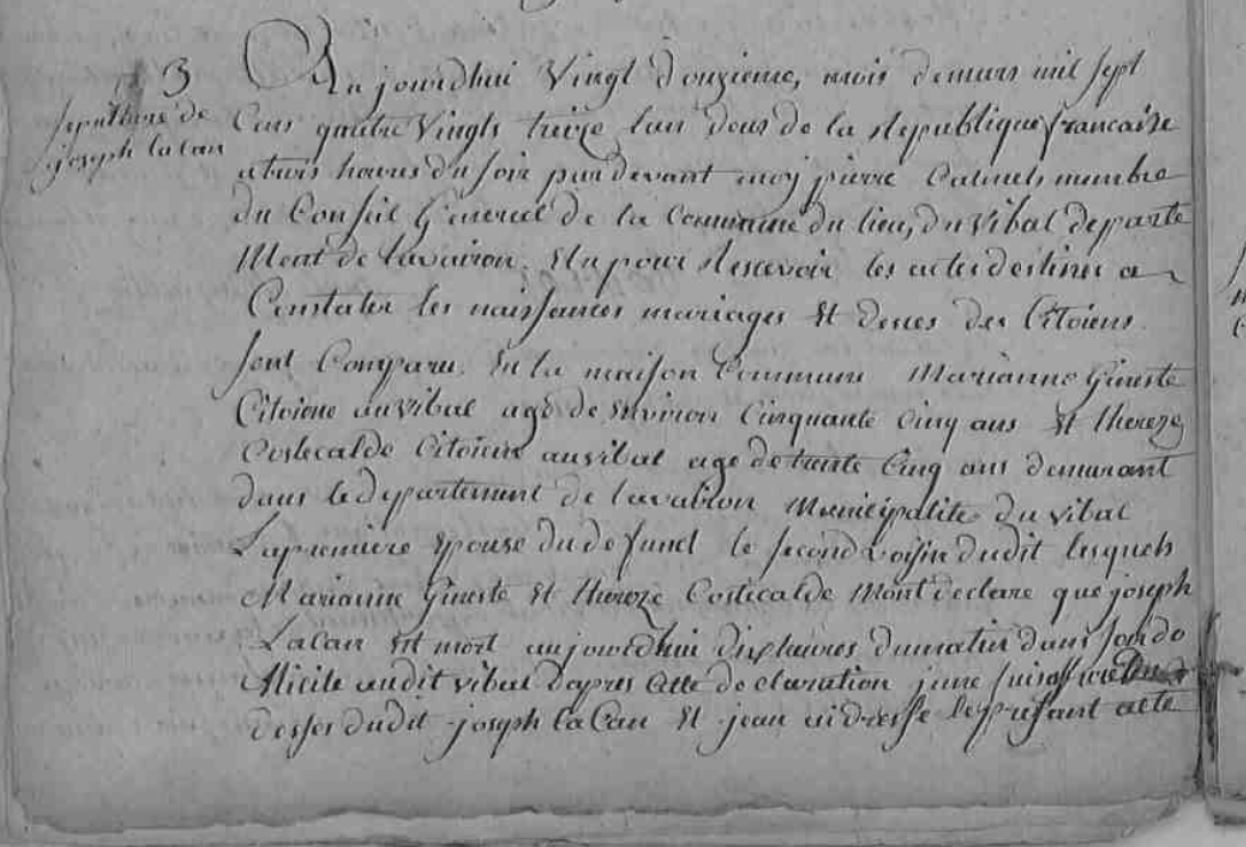 3
sepulture de
joseph lacan
Au jourdhui Vingt douzieme, mois demars mil sept
Cens quatre Vingts treize lan deus de la Republique francaise
atrois heures du soir pardevant moy pierre Calmels membre
du Conseil General de la Commune du lieu, du Vibal departe
Ment de lavairon. Elu pour Rescevoir les actes destines a
Constater les naissances mariages Et deces des Citoiens
sont Comparu. En la maison Commune Marianne Gineste
Citoiene auvibal agé de Environ Cinquante Cinq ans Et thereze
Costecalde Citoiene auvibal age de trente Cinq ans demurant
dans le departement de lavabron Municipalite du vibal
Lapremiere Epouse du defunct le second voisin dudit lesquels
Marianne Gineste Et thereze Costecalde Mont declare que joseph
Lacan Est mort aujourdhui dixheures dumatin dans son do
Micile audit vibal dapres cette declaration jme suis assure du
desses dudit joseph lacan Et jean aidresse lepresant acte